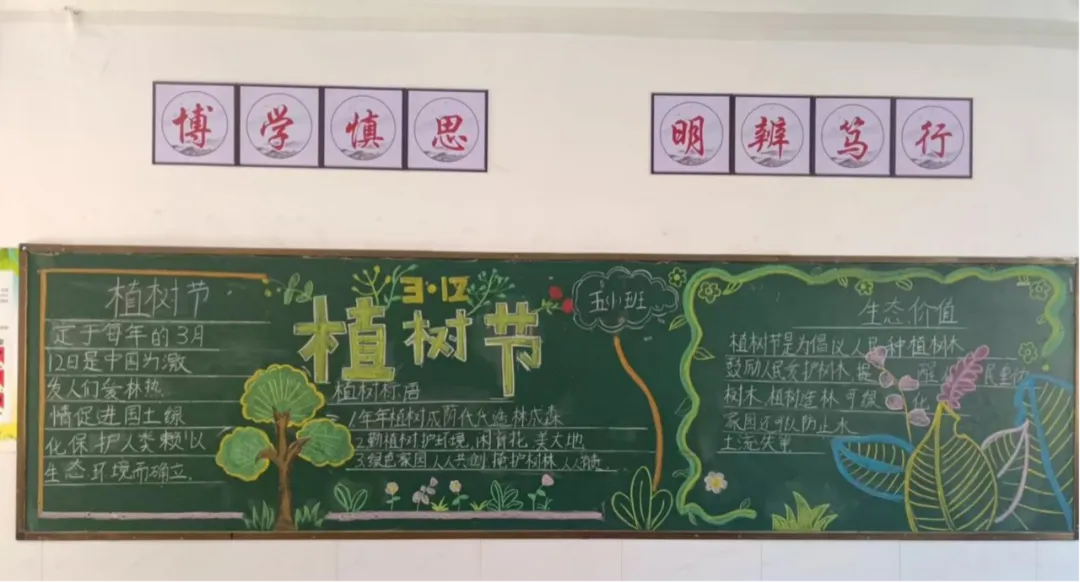 博学慎思
明辨笃行
植树节
定于每年的3月
12日是中国为激
发人们爱林热
情促进国土绿
化保护人类赖以
生态环境而确立.
3·12
植树节
五小班
植树标语
1年年植树成荫代代造林成森
2.勤植树护环境,闲育花 美大地
3.绿色家园人人共创 掩护树林 人人有责
生态价值
植树节是为倡议人民种植树木
鼓励人民爱护树木 提 醒
树木.植树造林 可 绿化
家园还可以防止水
土流失